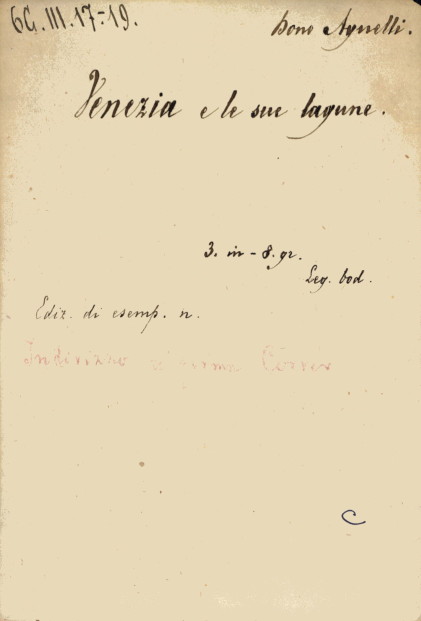 6G.III.17-19.
Dono Agnelli.
Venezia e le sue lagune.
3. in-8. gr.
Leg. bod.
Ediz. di esemp. n.
Indirizzo e firma Correr
C